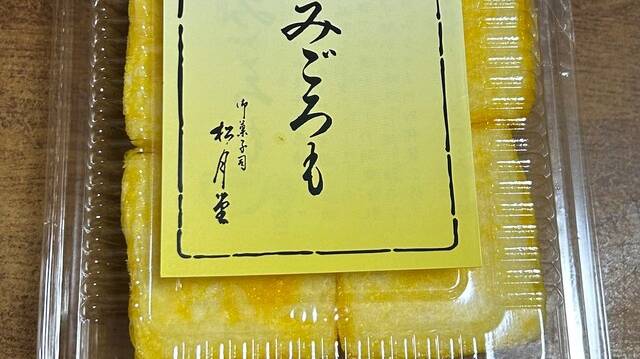 みごろも
御菓子司
松月堂